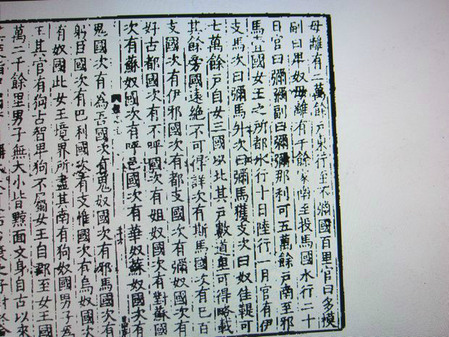 毋離有二萬餘戶東行至不彌國百里官曰多模
副曰卑奴毋離有千餘家南至投馬國水行二十
日官曰彌彌副曰彌彌那利可五萬餘戶南至邪
馬壹國女王之所都水行十日陸行一月官有伊
支馬次曰彌馬升次曰彌馬獲支次曰奴佳鞮可
七萬餘戶自女王國以北其戶數道里可得略載
其餘旁國遠絕不可得詳次有斯馬國次有巳百
支國次有伊邪國次有都支國次有彌奴國次有
好古都國次有不呼國次有姐奴國次有對蘇國
次有蘇奴國次有呼邑國次有華奴蘇奴國次有
鬼國次有為吾國次有鬼奴國次有邪馬國次有
躬臣國次有巴利國次有支惟國次有烏奴國次
有奴國此女王境界所盡其南有狗奴國男子為
王其官有狗古智卑狗不屬女王自郡至女王國
萬二千餘里男子無大小皆黥面文身自古以來